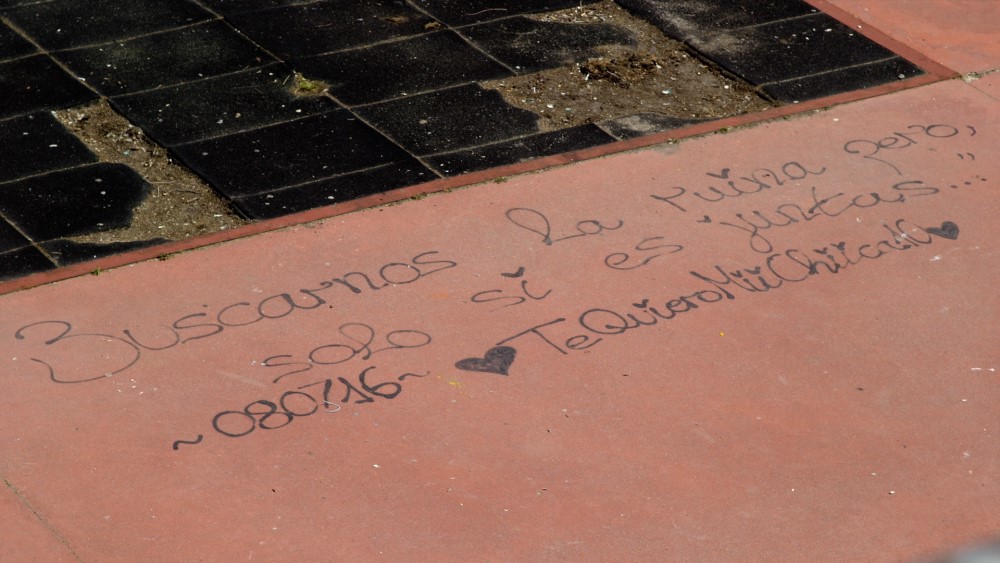 Buscamos la ruina pero,
solo si es juntas...
~080716~ ♥TeQuieroMiiChiica